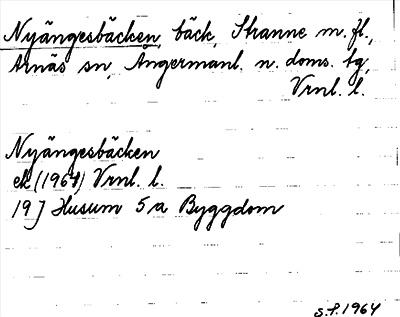 Nyängesbäcken, bäck, Stranne m.fl.,
Arnäs sn, Ångermanl. n. doms. tg,
Vrnl. l.
Nyängesbäcken
ek (1964) Vrnl. l.
19 J Husum 5 a Byggdom
S.f. 1964